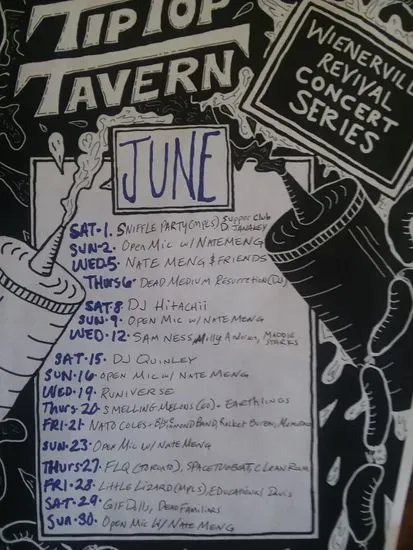 TIP TOP
TAVERN
WIENERVILLE
REVIVAL
CONCERT
SERIES
JUNE
SAT·1. SNIFFLE PARTY (MPLS) Supper Club
D JANAKEY
SUN·2. OPEN MIC W/ NATE MENG
WED·5. NATE MENG & FRIENDS
THURS·6. DEAD MEDIUM RESURRECTION (DJ)
SAT·8. DJ HITACHII
SUN·9. OPEN MIC W/ NATE MENG
WED·12. SAM NESS, Milly
SAT·15. DJ QUINLEY
SUN·16. OPEN MIC W/ NATE MENG
WED·19. RUNIVERSE
THURS·20. SMELLING MELONS (CO) + EARTHLINGS
FRI·21. NATO COLES + BLUE DIAMOND BAND, ROCKET BUREAU
SUN·23. OPEN MIC W/ NATE MENG
THURS·27. FLQ (TORONTO), SPACETUBOAT, CLEAN ROOM
FRI·28. LITTLE LIZARD (MPLS), EDUCATIONAL
SAT·29. GIF Dolls, DEAD FAMILIARS
SUN·30. OPEN MIC W/ NATE MENG